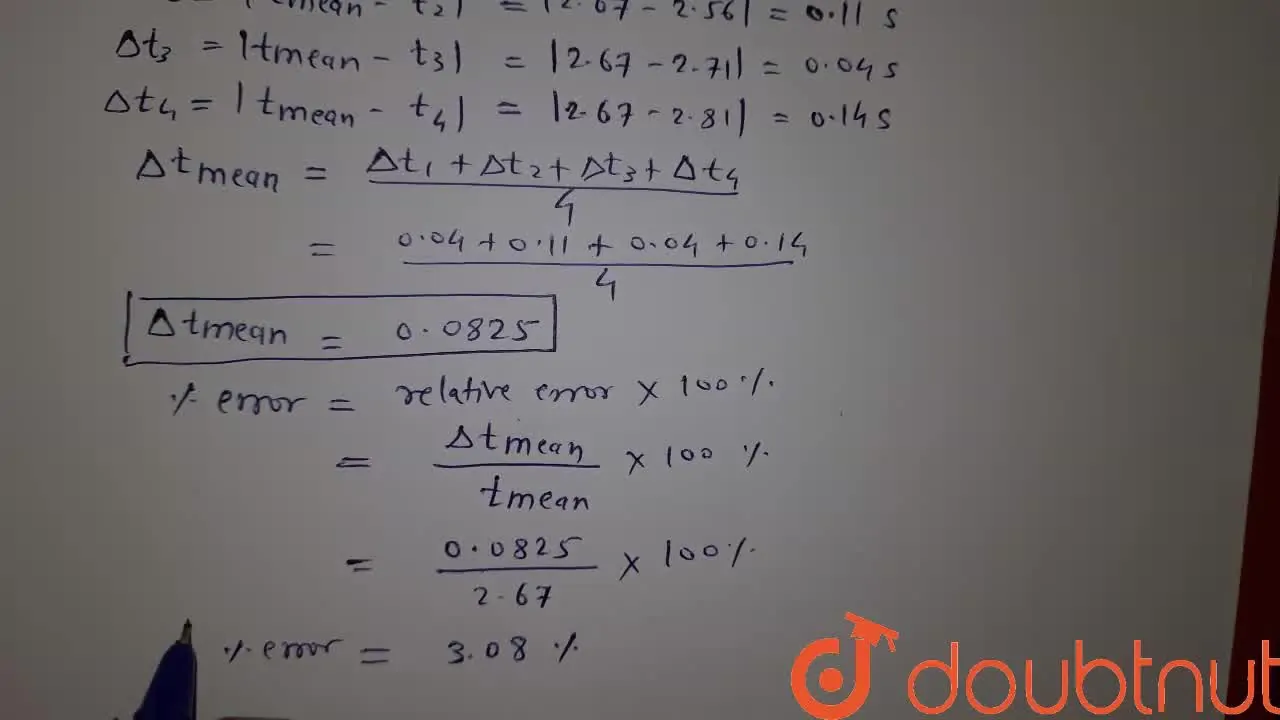 |tmean - t2| = |2.67 - 2.56| = 0.11 s
Δt3 = |tmean - t3| = |2.67 - 2.71| = 0.04s
Δt4 = |tmean - t4| = |2.67 - 2.81| = 0.14s
Δtmean = Δt1 + Δt2 + Δt3 + Δt4
4
= 0.04 + 0.11 + 0.04 + 0.14
4
Δtmean = 0.0825
% error = relative error × 100 %
= Δtmean × 100 %
tmean
= 0.0825 × 100 %
2.67
% error = 3.08 %
doubtnut